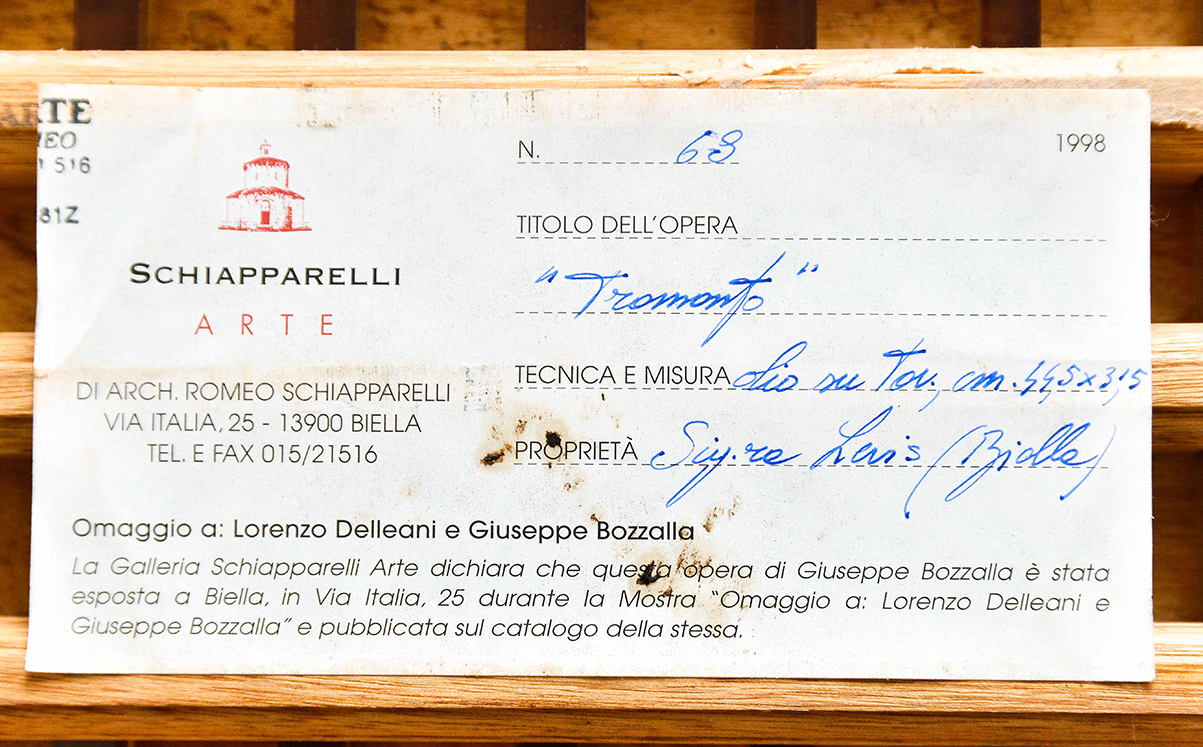 ARTE
MEO
1 516
81Z
SCHIAPPARELLI
ARTE
DI ARCH. ROMEO SCHIAPPARELLI
VIA ITALIA, 25 - 13900 BIELLA
TEL. E FAX 015/21516
N. 68
1998
TITOLO DELL'OPERA
"Tramonto"
TECNICA E MISURA olio su Tav., cm.
PROPRIETÀ Sig.ra (Biella)
Omaggio a: Lorenzo Delleani e Giuseppe Bozzalla
La Galleria Schiapparelli Arte dichiara che questa opera di Giuseppe Bozzalla è stata
esposta a Biella, in Via Italia, 25 durante la Mostra "Omaggio a: Lorenzo Delleani e
Giuseppe Bozzalla" e pubblicata sul catalogo della stessa.